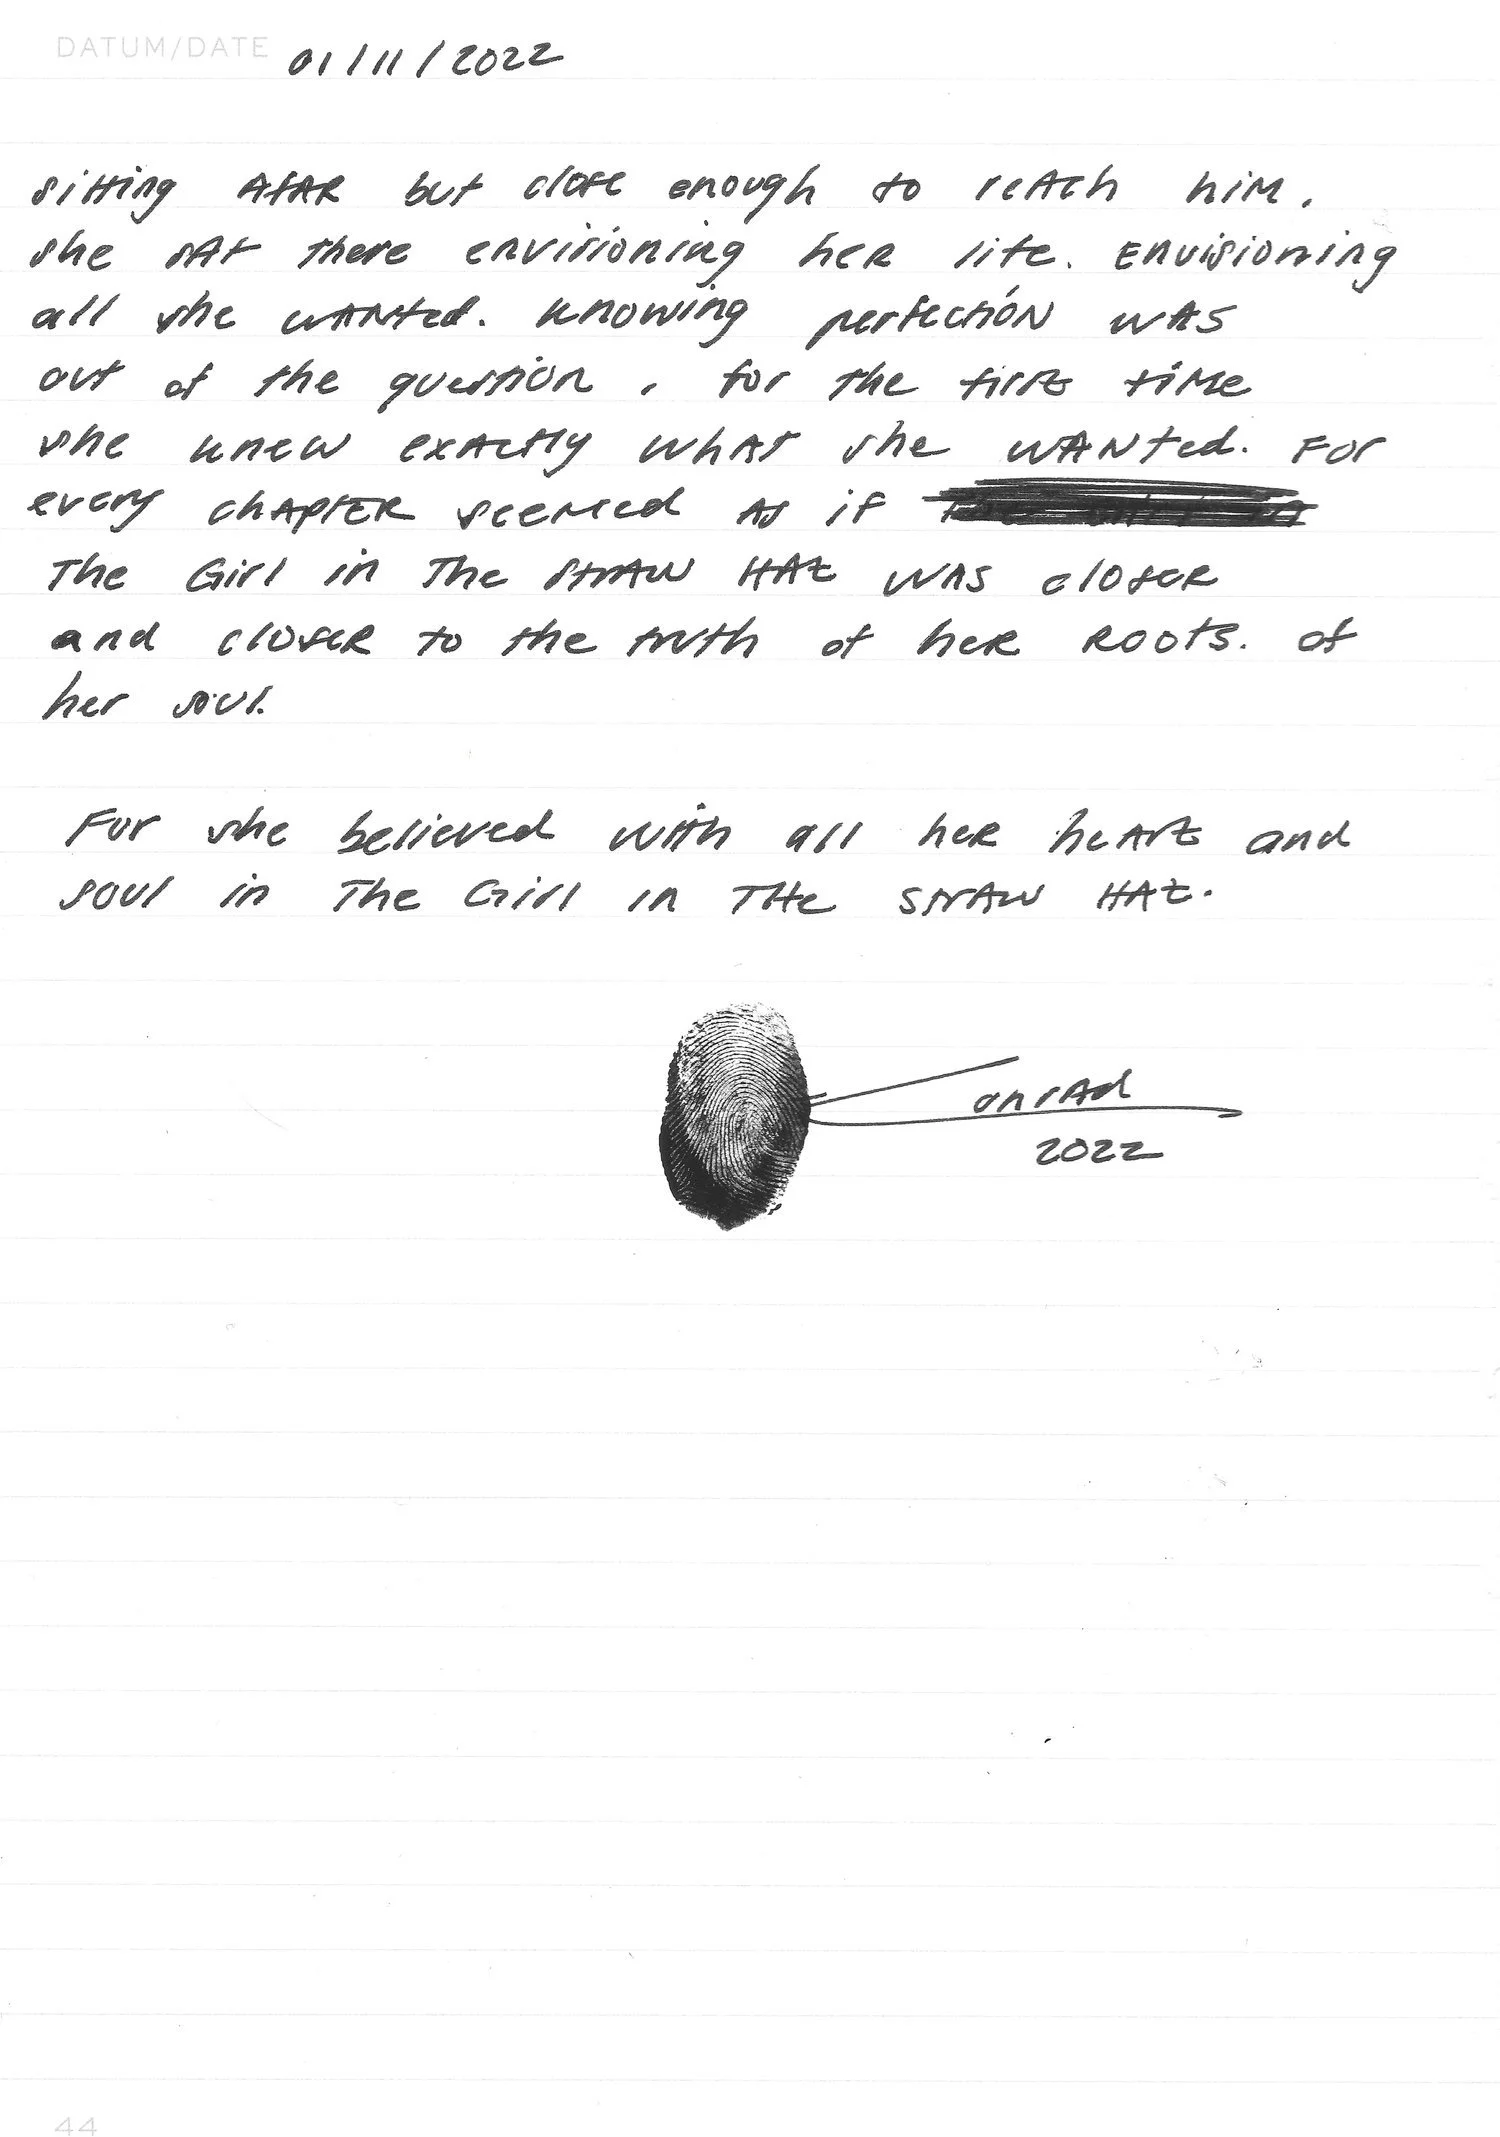 DATUM/DATE 01/11/2022
sitting AfAR but close enough to reAch hiM.
she sAt there envisioning heR life. Envisioning
all she wANted. Knowing perfection wAS
out of the question. for the first tiMe
she knew exActly whAt she wANted. For
every chApTER seeMed AS if
The Girl in The StrAW HAt WAS closeR
and closeR to the truth of heR ROOtS. of
her soul.
For she believed with all heR heArt and
soul in The Girl in THe StrAW HAt.
onrAd
2022
44